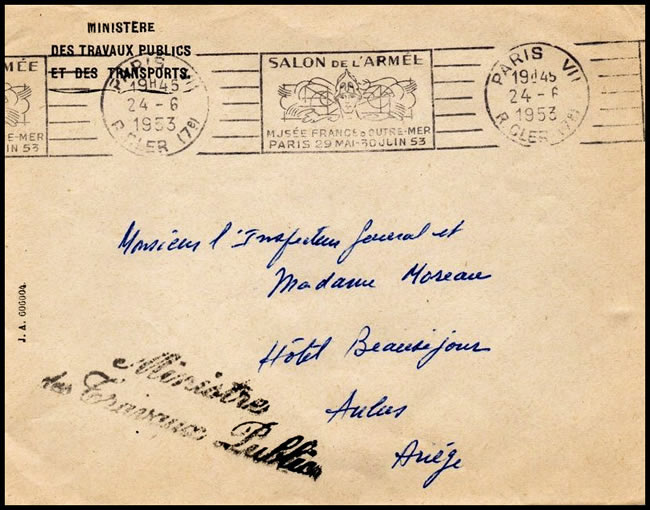 MINISTÈRE
DES TRAVAUX PUBLICS
ET DES TRANSPORTS.
MÉE
E-MER
IN 53
PARIS
19H45
24-6
1953
R.CLER (7e)
SALON DE L'ARMÉE
MUSÉE FRANCE D'OUTRE-MER
PARIS 29 MAI-30 JUIN 53
PARIS VII
19H45
24-6
1953
R.CLER (7e)
Monsieur l'Inspecteur General et
Madame Moreau
Hôtel Beauséjour
Aulus
Ariége
J. A. 606004.
Ministre
des Travaux Publics